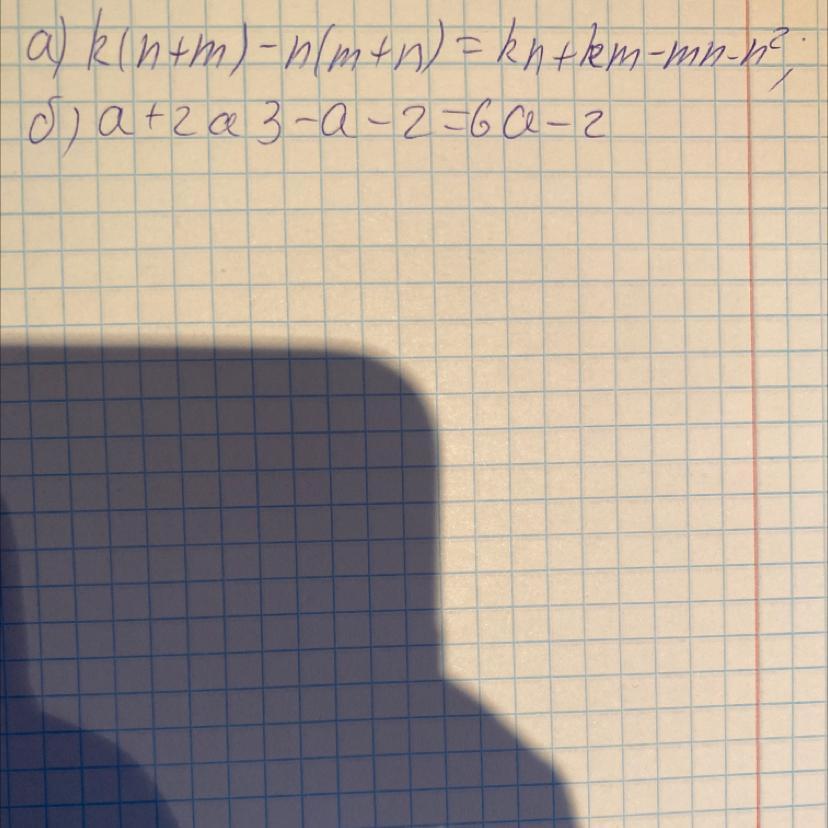 а) k(n+m)-n(m+n)=kn+km-mn-n²;
б) a+2a3-a-2=6a-2